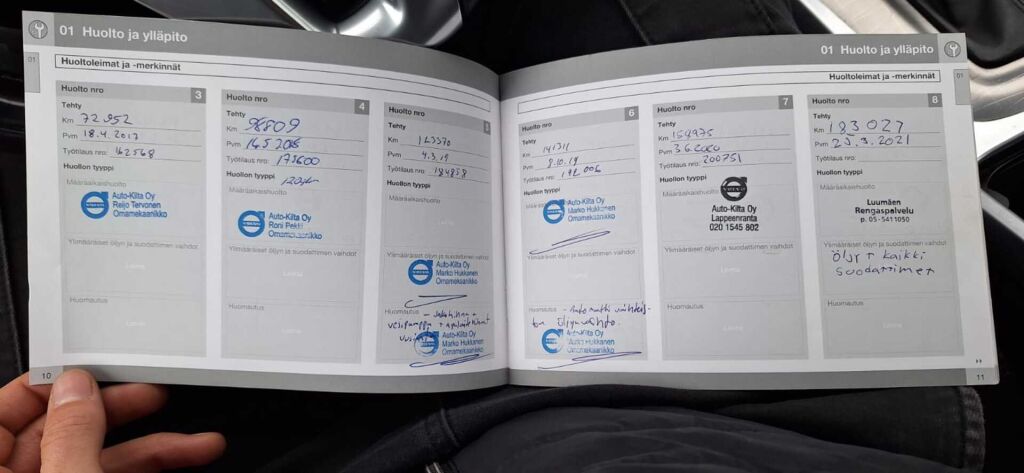 01 Huolto ja ylläpito
01
Huoltoleimat ja -merkinnät
Huolto nro 3
Tehty
Km 72952
Pvm 18.4.2017
Työtilaus nro: 162568
Huollon tyyppi
Määräaikaishuolto
VOLVO
Auto-Kilta Oy
Reijo Tervonen
Omamekaanikko
Ylimääräiset öljyn ja suodattimen vaihdot
Leima
Huomautus
Leima
Huolto nro 4
Tehty
Km 98809
Pvm 16.5.2018
Työtilaus nro: 175600
Huollon tyyppi
Määräaikaishuolto
VOLVO
Auto-Kilta Oy
Roni Pekki
Omamekaanikko
Ylimääräiset öljyn ja suodattimen vaihdot
Leima
Huomautus
Leima
Huolto nro 5
Tehty
Km 123370
Pvm 4.3.19
Työtilaus nro: 184858
Huollon tyyppi
Määräaikaishuolto
Ylimääräiset öljyn ja suodattimen vaihdot
VOLVO
Auto-Kilta Oy
Marko Hukkanen
Omamekaanikko
Huomautus
- Jakohihna +
vesipumppu +
uusittu
Auto-Kilta Oy
Marko Hukkanen
Omamekaanikko
10
01 Huolto ja ylläpito
01
Huoltoleimat ja -merkinnät
Huolto nro 6
Tehty
Km 141311
Pvm 8.10.19
Työtilaus nro: 192006
Huollon tyyppi
Määräaikaishuolto
VOLVO
Auto-Kilta Oy
Marko Hukkanen
Omamekaanikko
Ylimääräiset öljyn ja suodattimen vaihdot
Huomautus
- Automaatti vaihteis-
ton öljynvaihto.
Auto-Kilta Oy
Marko Hukkanen
Omamekaanikko
Huolto nro 7
Tehty
Km 154975
Pvm 3.6.2020
Työtilaus nro: 200751
Huollon tyyppi
Määräaikaishuolto
VOLVO
Auto-Kilta Oy
Lappeenranta
020 1545 802
Ylimääräiset öljyn ja suodattimen vaihdot
Leima
Huomautus
Leima
Huolto nro 8
Tehty
Km 183027
Pvm 25.3.2021
Työtilaus nro:
Huollon tyyppi
Määräaikaishuolto
Luumäen
Rengaspalvelu
p. 05-5411050
Ylimääräiset öljyn ja suodattimen vaihdot
öljyt + kaikki
suodattimet
Huomautus
Leima
11